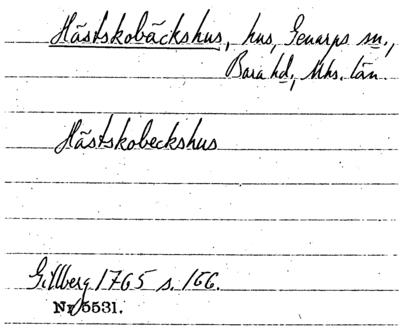 Hästskobäckshus, hus, Genarps sn.,
Bara hd., Mhs. län.
Hästskobeckshus
Gillberg 1765 s. 166.
Nr 5531.